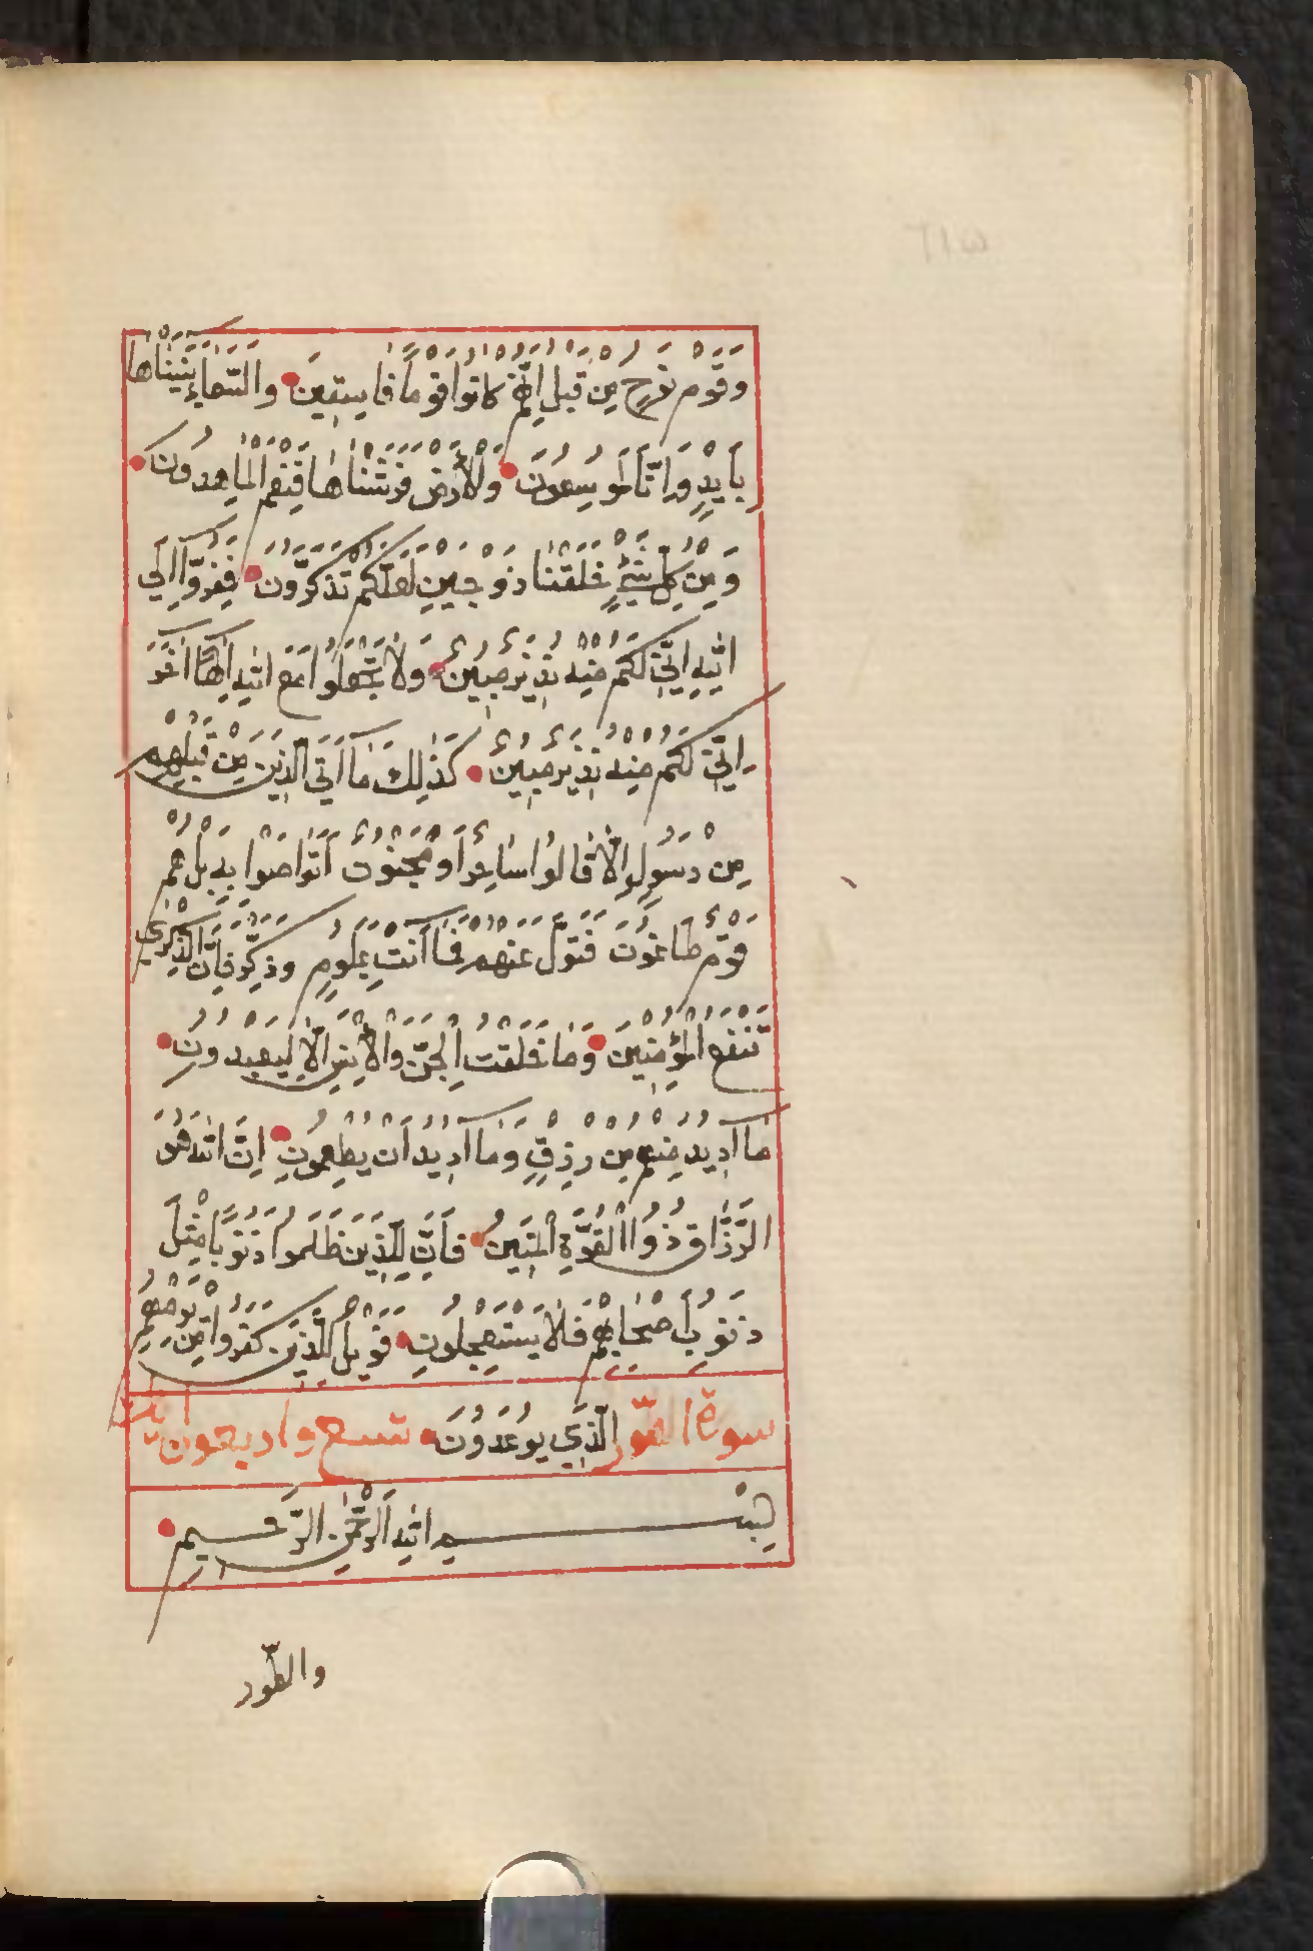 وَقَوْمَ نُوحٍ مِنْ قَبْلُ اِنَّهُمْ كَانُوا قَوْمًا فَاسِقِينَ وَالسَّمَاءَ بَنَيْنَاهَا
بِأَيْدٍ وَاِنَّا لَمُوسِعُونَ وَالْأَرْضَ فَرَشْنَاهَا فَنِعْمَ الْمَاهِدُونَ
وَمِنْ كُلِّ شَيْءٍ خَلَقْنَا زَوْجَيْنِ لَعَلَّكُمْ تَذَكَّرُونَ فَفِرُّوا اِلَى
اللهِ اِنِّي لَكُمْ مِنْهُ نَذِيرٌ مُبِينٌ وَلَا تَجْعَلُوا مَعَ اللهِ اِلَهًا اٰخَرَ
اِنِّي لَكُمْ مِنْهُ نَذِيرٌ مُبِينٌ كَذَلِكَ مَا أَتَى الَّذِينَ مِنْ قَبْلِهِمْ
مِنْ رَسُولٍ اِلَّا قَالُوا سَاحِرٌ أَوْ مَجْنُونٌ أَتَوَاصَوْا بِهِ بَلْ هُمْ
قَوْمٌ طَاغُونَ فَتَوَلَّ عَنْهُمْ فَمَا أَنْتَ بِمَلُومٍ وَذَكِّرْ فَاِنَّ الذِّكْرَى
تَنْفَعُ الْمُؤْمِنِينَ وَمَا خَلَقْتُ الْجِنَّ وَالْاِنْسَ اِلَّا لِيَعْبُدُونِ
مَا أُرِيدُ مِنْهُمْ مِنْ رِزْقٍ وَمَا أُرِيدُ أَنْ يُطْعِمُونِ اِنَّ اللهَ هُوَ
الرَّزَّاقُ ذُوا الْقُوَّةِ الْمَتِينُ فَاِنَّ لِلَّذِينَ ظَلَمُوا ذَنُوبًا مِثْلَ
ذَنُوبِ أَصْحَابِهِمْ فَلَا يَسْتَعْجِلُونِ فَوَيْلٌ لِلَّذِينَ كَفَرُوا مِنْ يَوْمِهِمُ
سورة الطّور الَّذِي يُوعَدُونَ تسع واربعون اية
بِسْمِ اللهِ الرَّحْمَنِ الرَّحِيمِ
والطّور